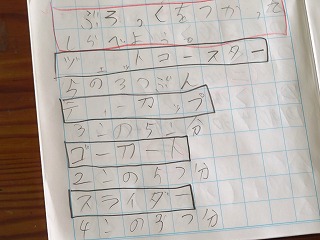 ぶろっくをつかって
しらべよう。
ジェットコースター
5の3つぶん
ティーカップ
3この5こ分
ゴーカート
2この5つ分
スライダー
4この3つ分